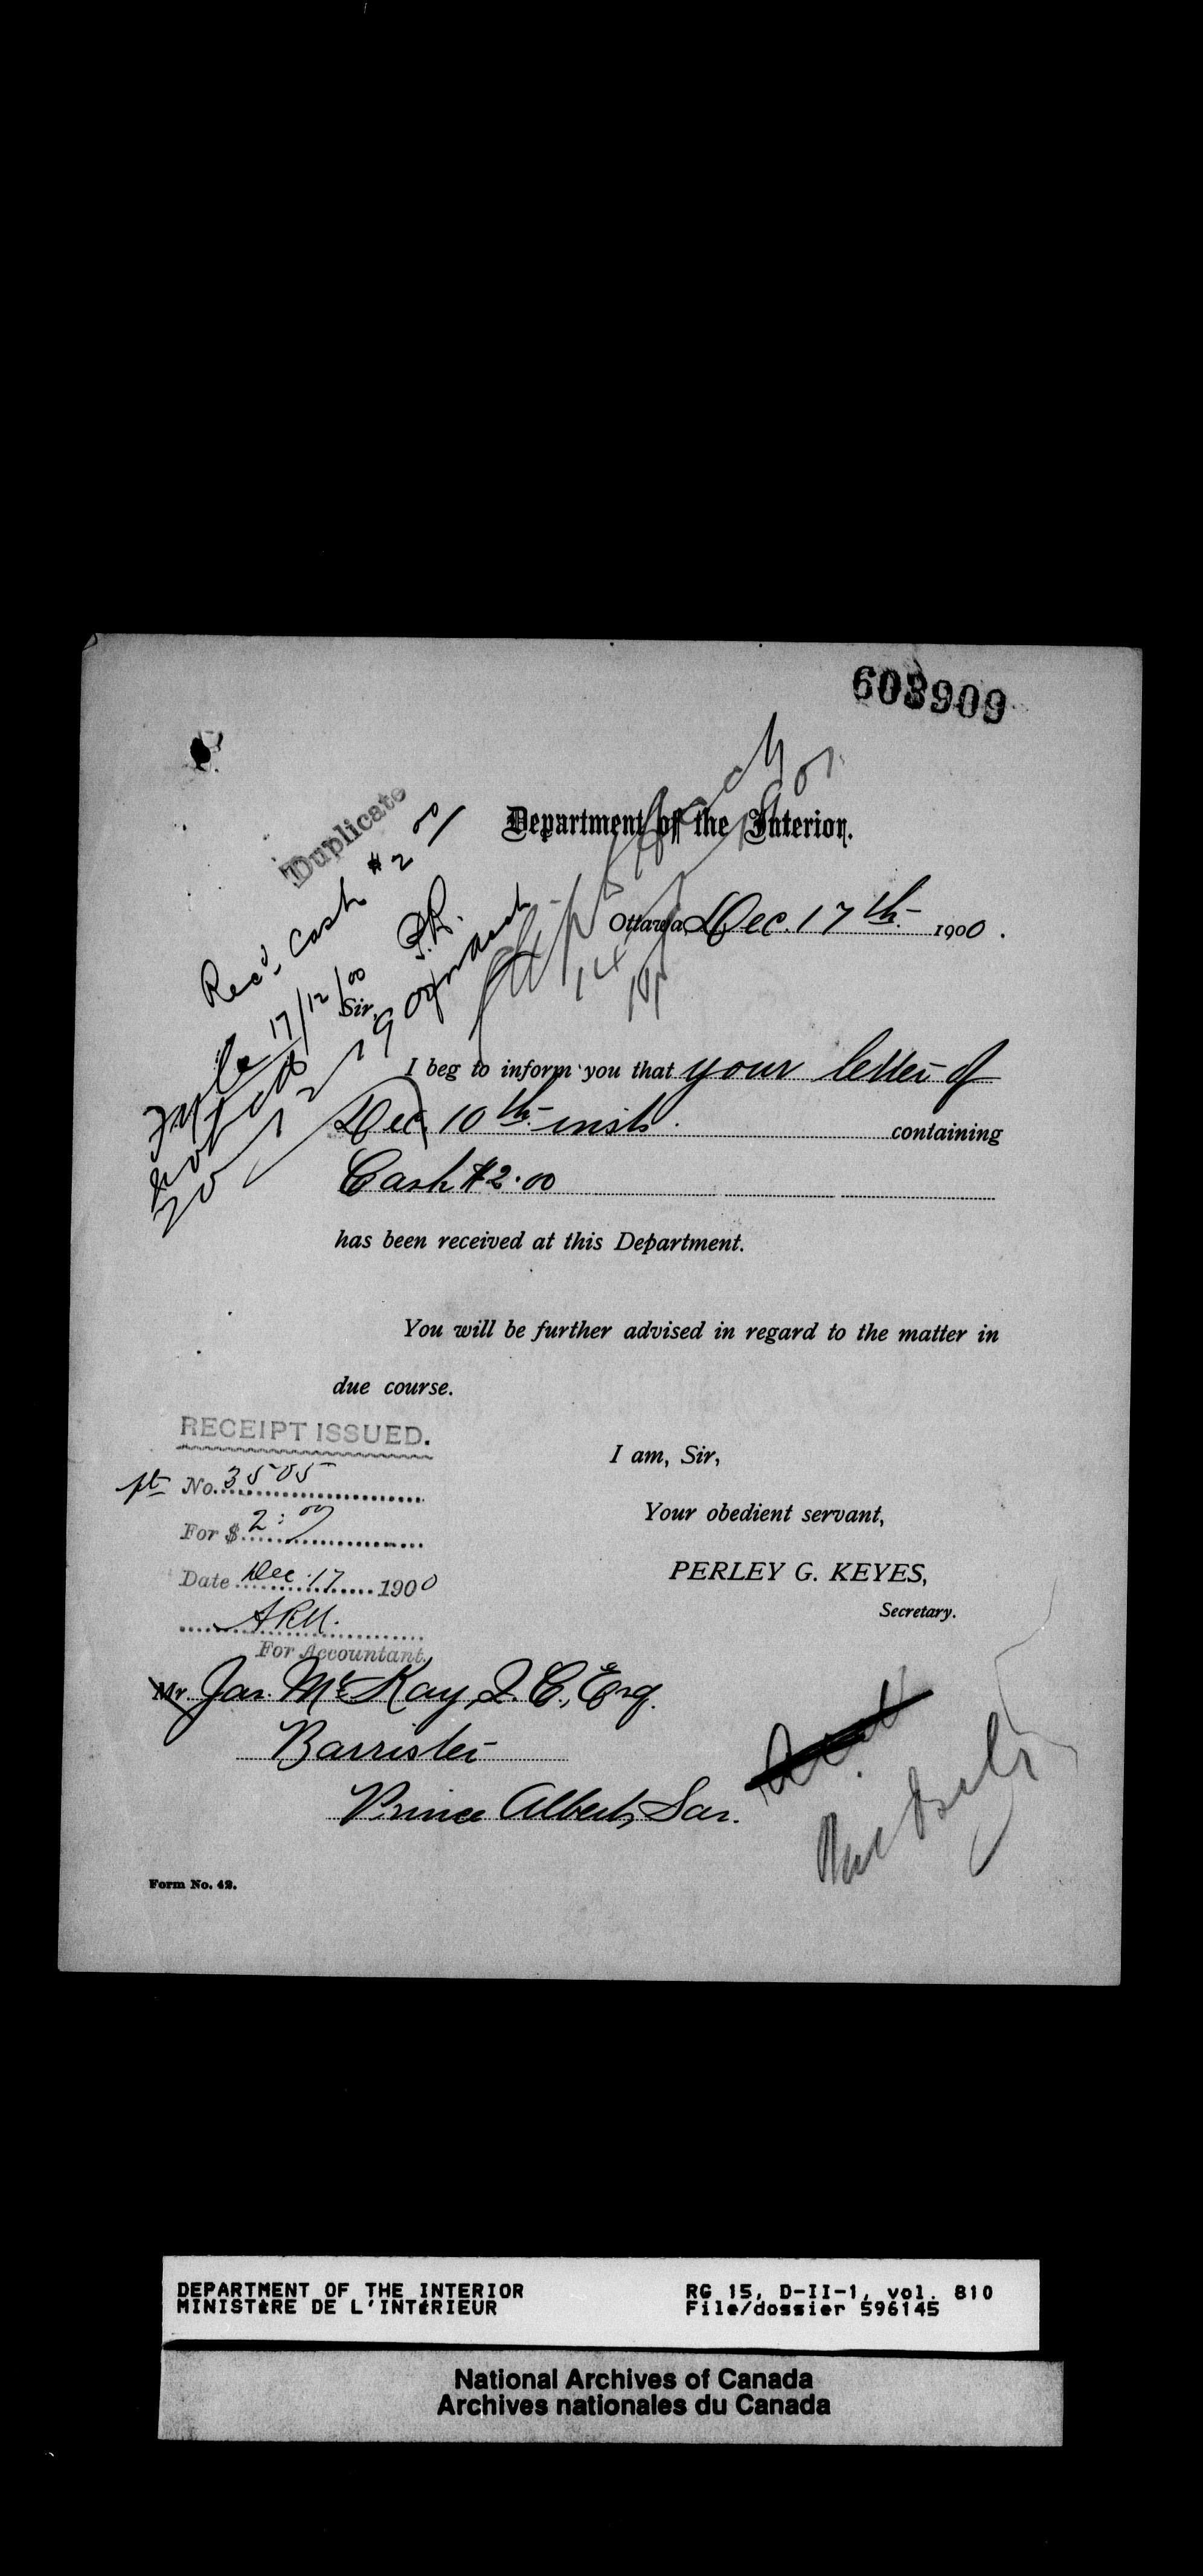 603909
Duplicate
Department of the Interior.
Rec'd Cash $2 00/
17/12/00 P.R.
Ottawa, Dec. 17th 1900.
Sir,
I beg to inform you that your letter of
Dec. 10th inst. containing
Cash $2.00
has been received at this Department.
You will be further advised in regard to the matter in
due course.
RECEIPT ISSUED.
No. 3505
For $ 2:00
Date Dec 17 1900
For Accountant.
I am, Sir,
Your obedient servant,
PERLEY G. KEYES,
Secretary.
Mr. Jas. McKay, Q.C., Esq.
Barrister
Prince Albert, Sas.
Form No. 42.
DEPARTMENT OF THE INTERIOR
MINISTÈRE DE L'INTÉRIEUR
RG 15, D-II-1, vol. 810
File/dossier 596145
National Archives of Canada
Archives nationales du Canada